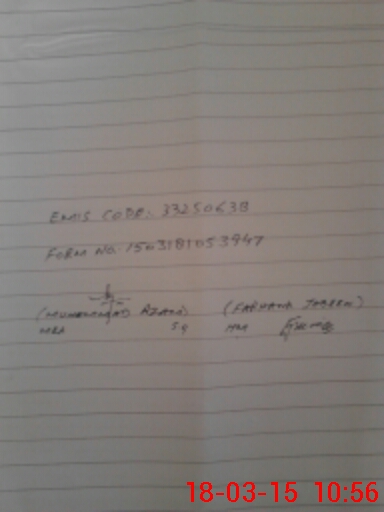 EMIS CODE:- 33250638
FORM NO:- 1503181053947
(MUHAMMAD AZAM) (FARHANA JABEEN)
MEA 59 HM
18-03-15 10:56